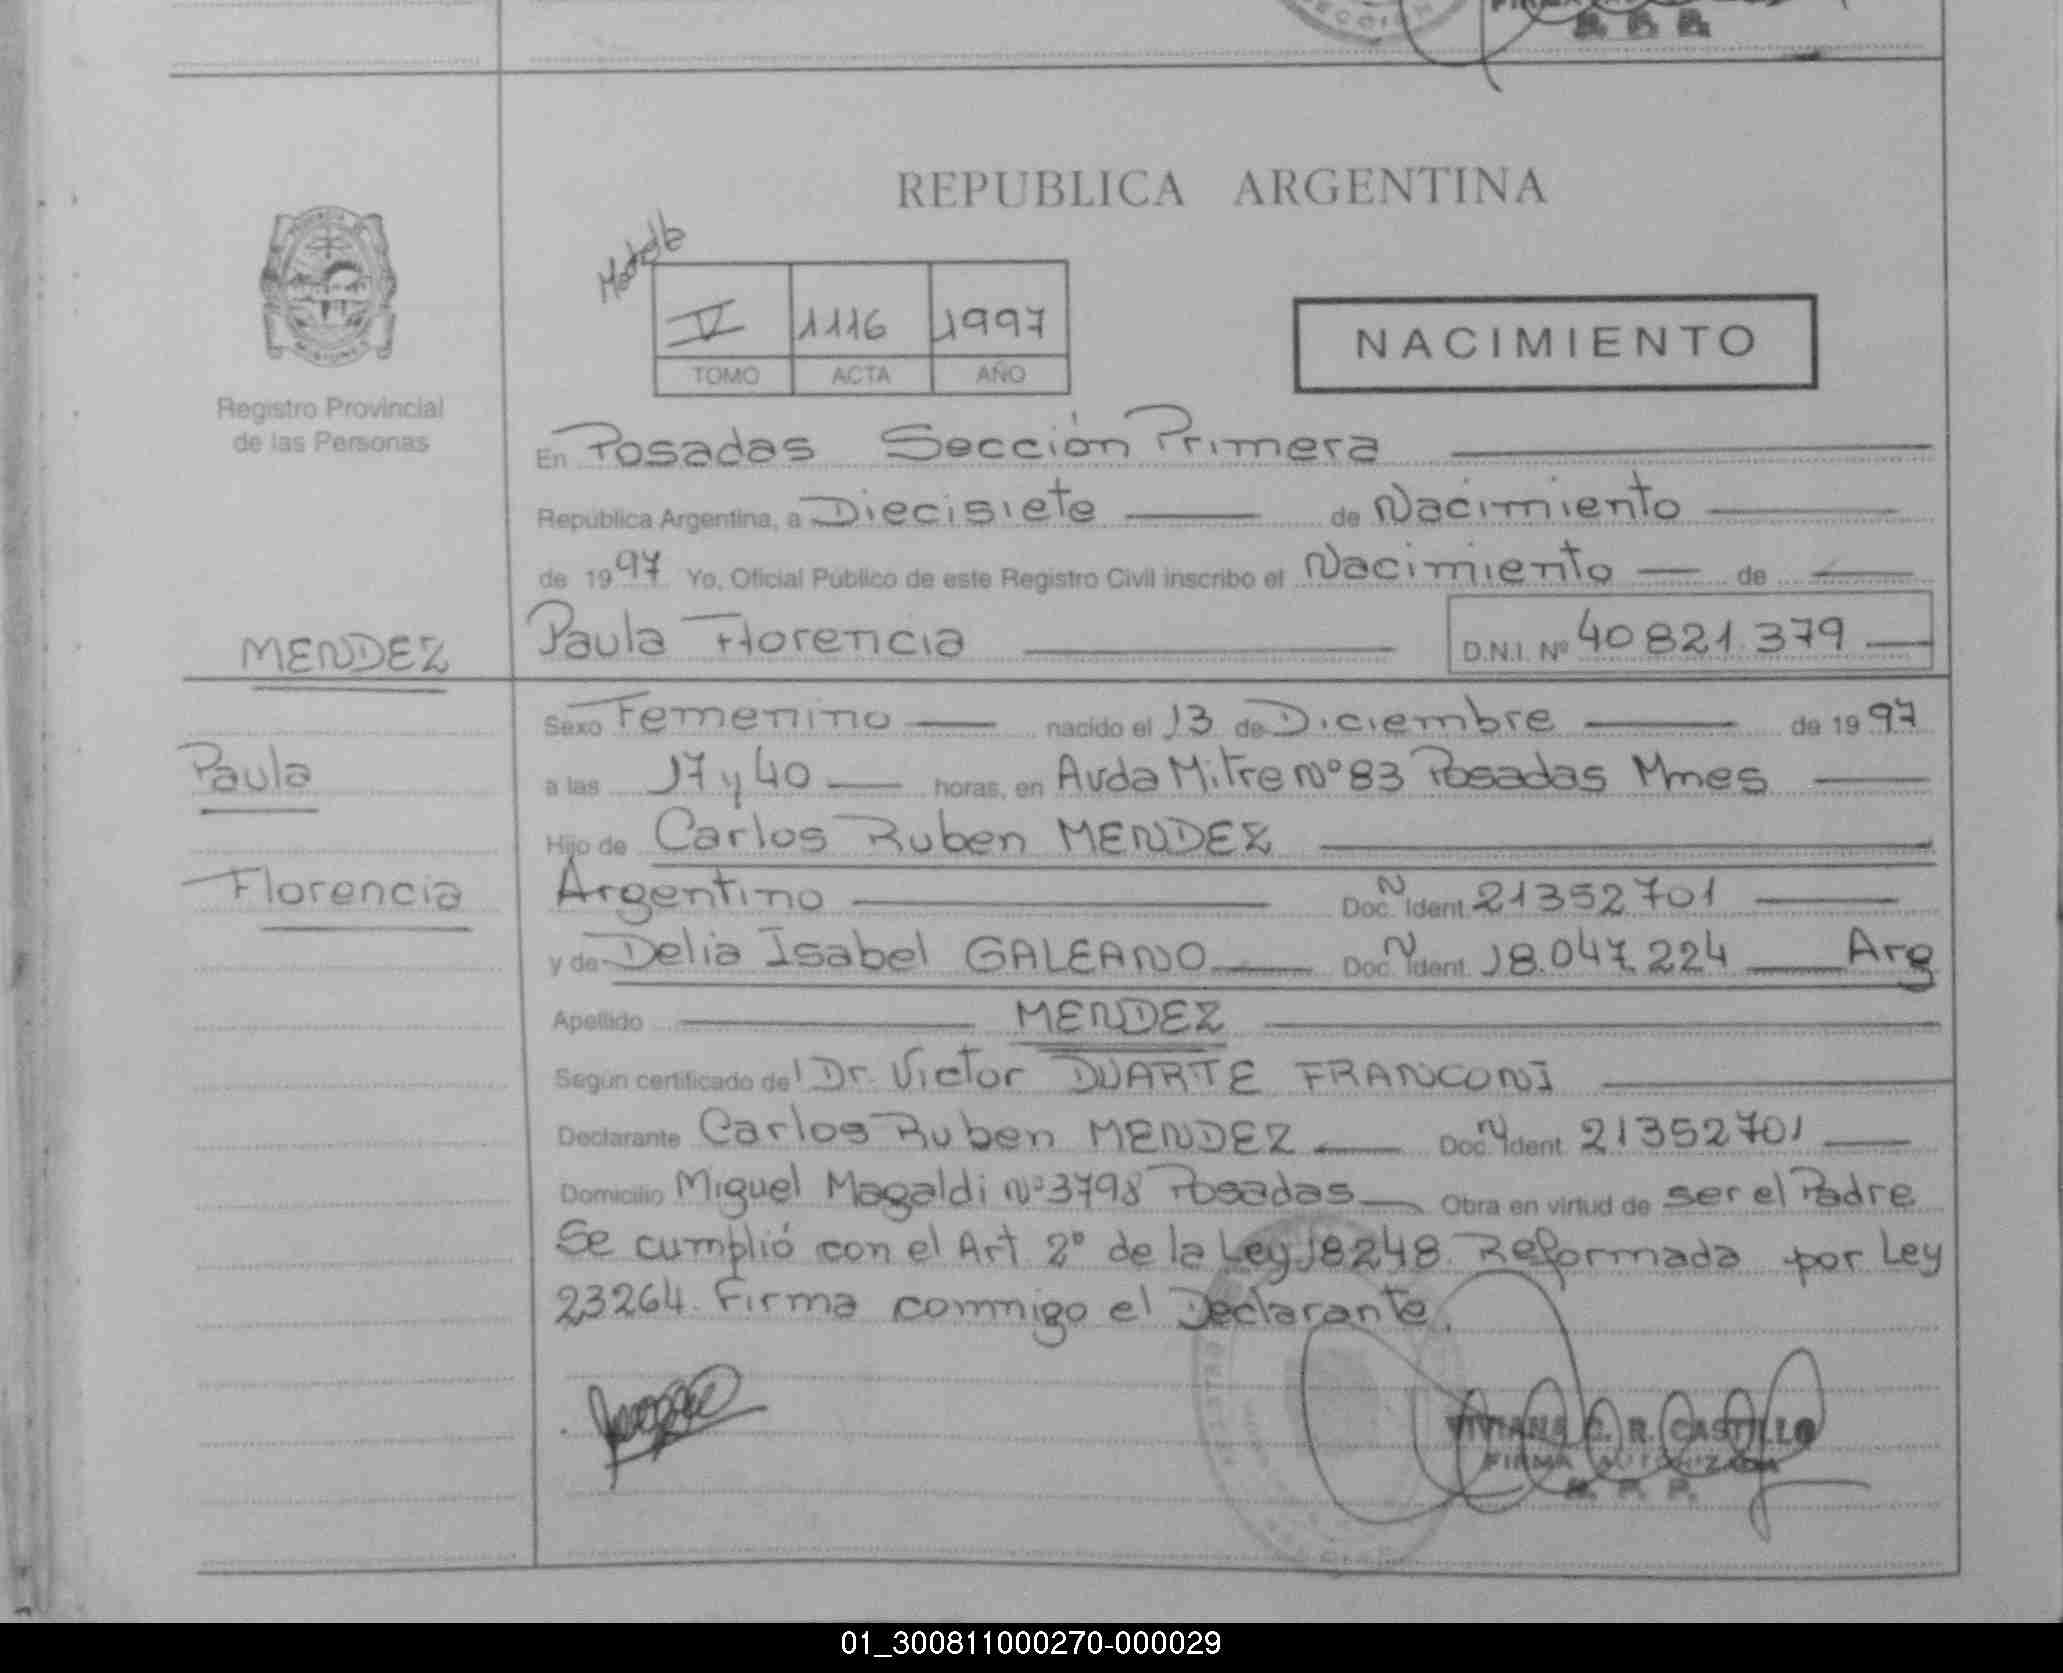 REPUBLICA ARGENTINA
IV 1116 1997
TOMO ACTA AÑO
NACIMIENTO
Registro Provincial
de las Personas
En Posadas Sección Primera
República Argentina, a Diecisiete de Nacimiento
de 1997 Yo, Oficial Público de este Registro Civil inscribo el Nacimiento de
MENDEZ
Paula Florencia D.N.I. Nº 40821.379
Sexo Femenino nacido el 13 de Diciembre de 1997
Paula
a las 17 y 40 horas, en Avda Mitre Nº 83 Posadas Mnes
Hijo de Carlos Ruben MENDEZ
Florencia
Argentino Doc. N Ident. 21352701
y de Delia Isabel GALEANO Doc. N Ident. 18.047.224 Arg
Apellido MENDEZ
Según certificado del Dr. Victor DUARTE FRANCONI
Declarante Carlos Ruben MENDEZ Doc. N Ident. 21352701
Domicilio Miguel Magaldi Nº 3798 Posadas Obra en virtud de ser el Padre
Se cumplió con el Art 2º de la Ley 18248. Reformada por Ley
23264. Firma conmigo el Declarante.
VIVIANA C. R. CASTILLO
FIRMA AUTORIZADA
01_300811000270-000029